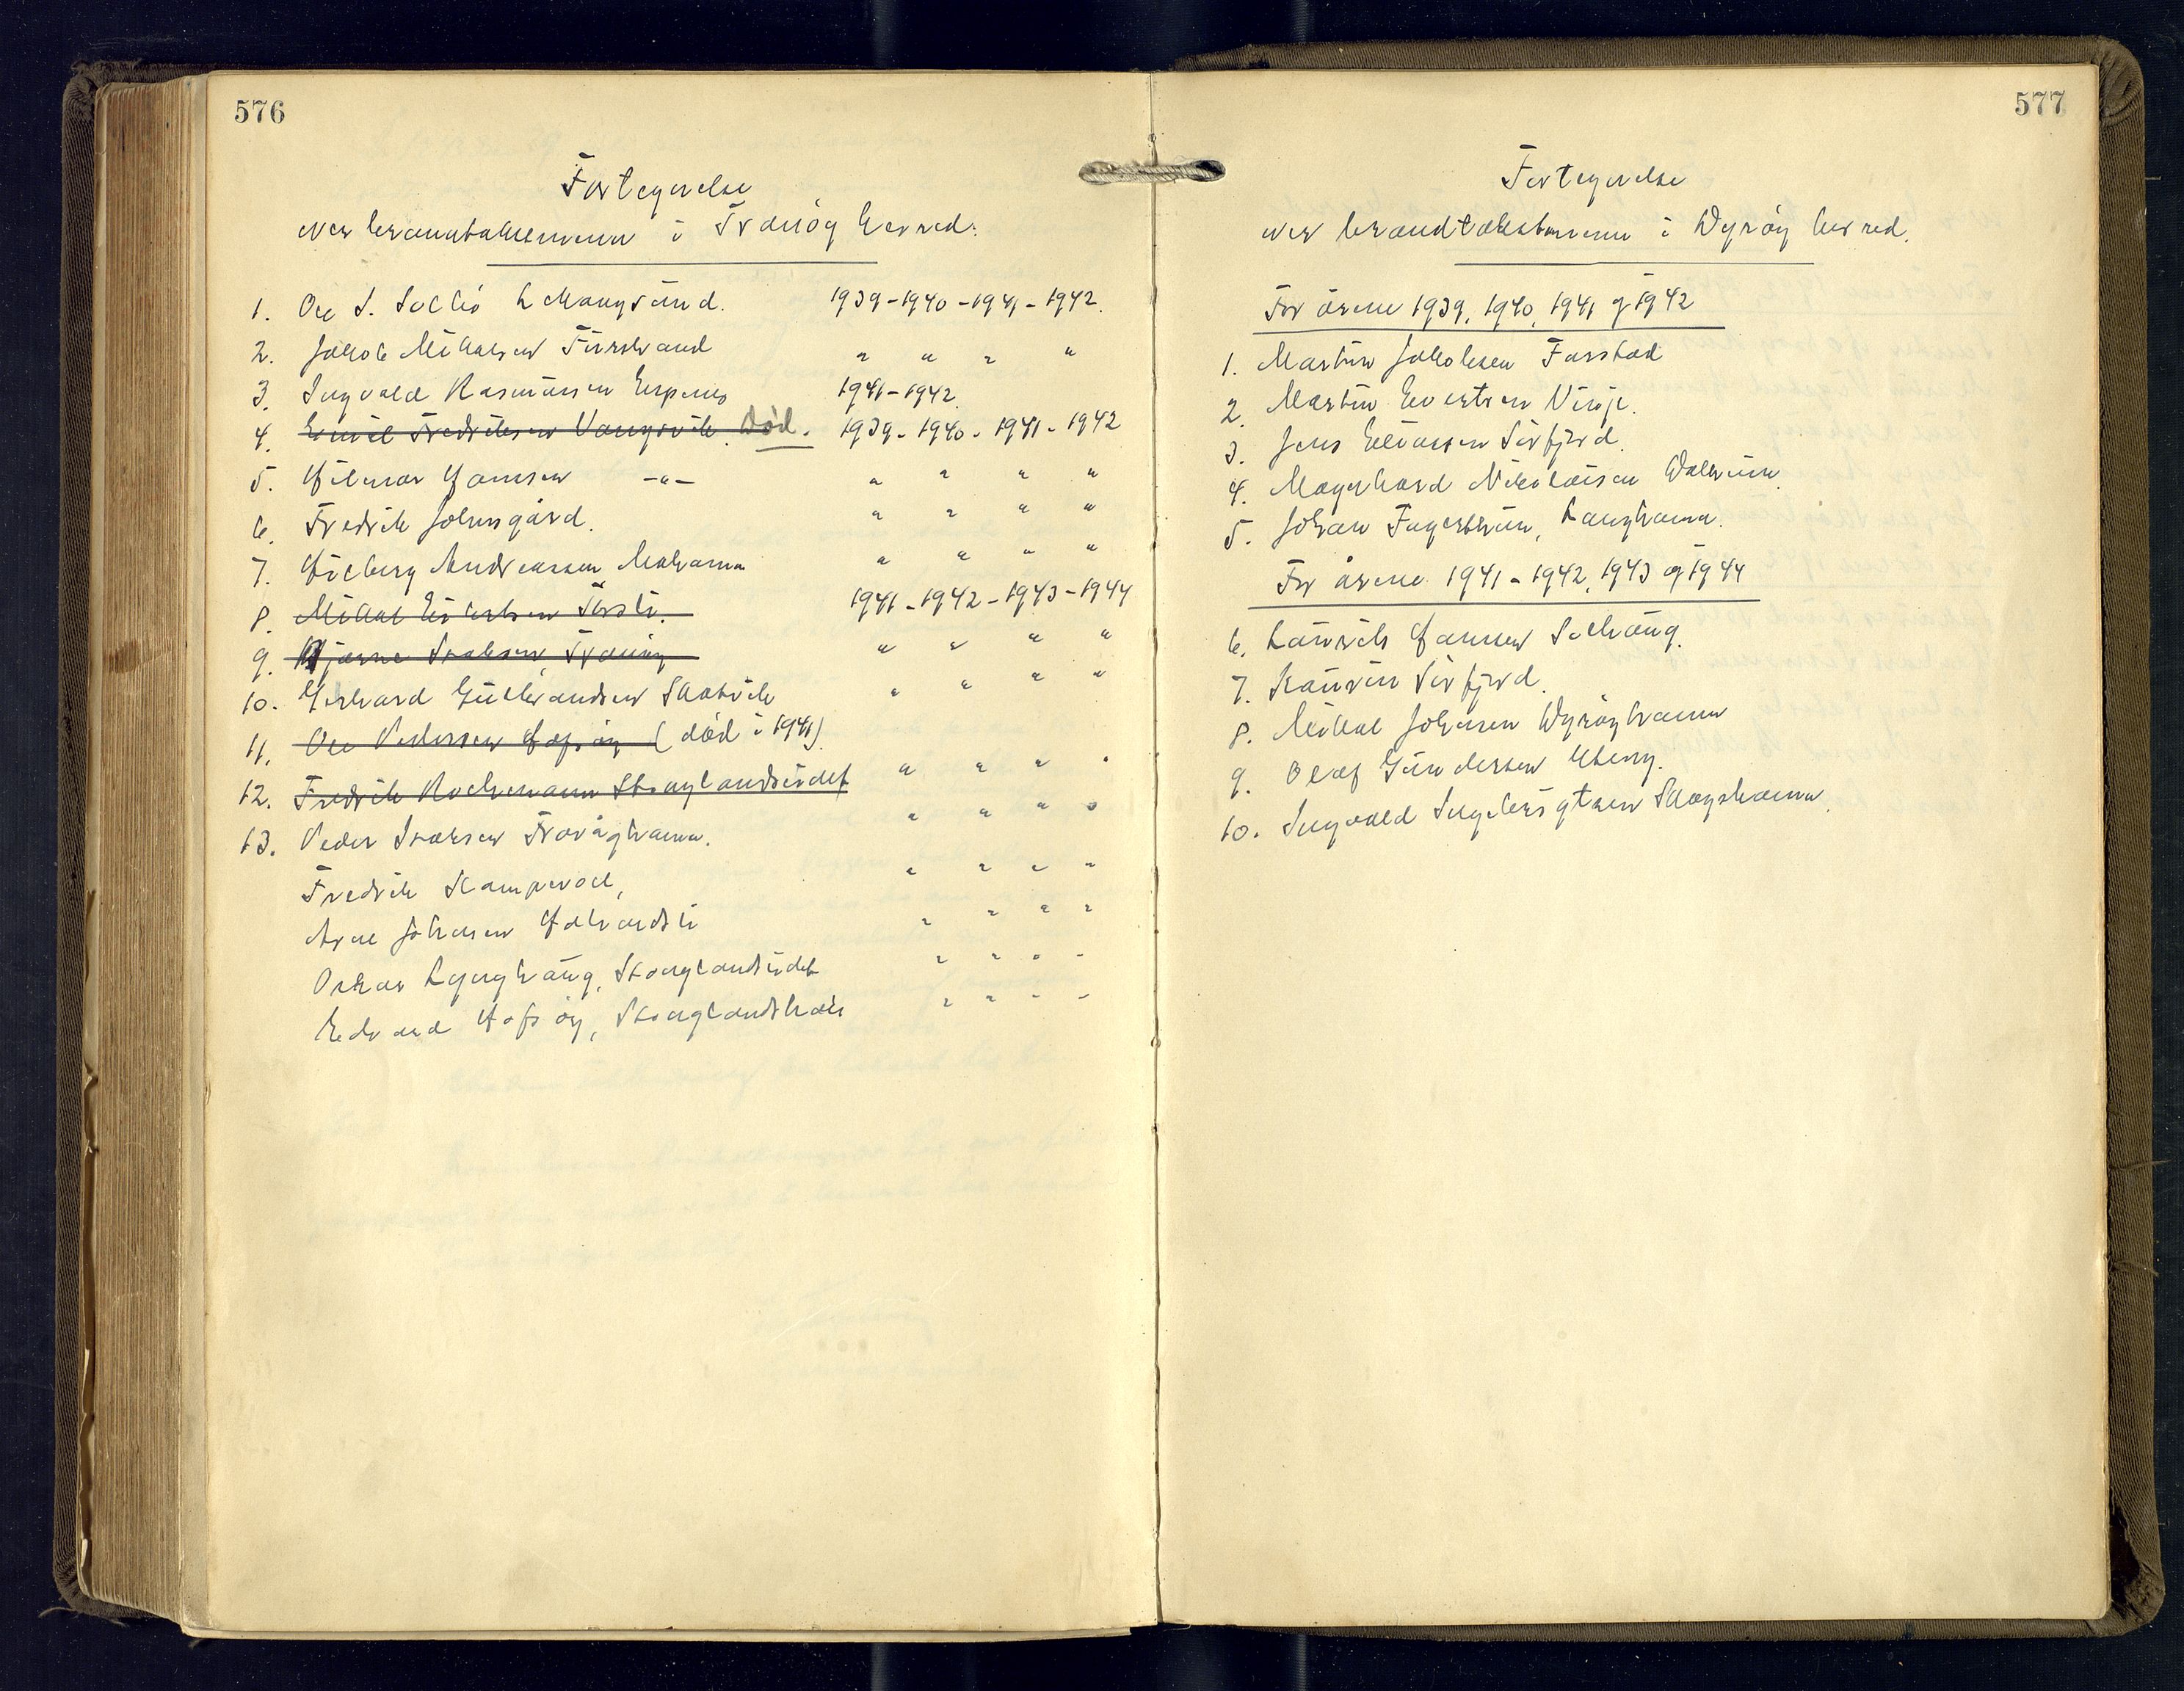 576
Fortegnelse
over branntakstmenn i Tranøy herred:
1. Ole S. Sollid 1939-1940-1941-1942.
2. Jakob Mikalsen " " " "
3. Ingvald Rasmussen Espenes 1941-1942.
4. Emil Fredriksen Vangsvik. Død. 1939-1940-1941-1942
5. Hilmar Hansen -"- " " " "
6. Fredrik Johnsgård. " " " "
7. Hilberg Andreassen " " " "
8. Mikal 1941-1942-1943-1944
9. Bjarne Isaksen Tranøy " " " "
10. Gerhard Gulbrandsen Skatvik " " " "
11. Ole Pedersen Hofsøy (død i 1941).
12. Fredrik Rochmann Stonglandseidet " " " "
13. Peder Isaksen Tranøyhamn. " " " "
Fredrik Kampevoll, " " " "
Arne Johansen " " " "
Oskar Lynghaug, Stonglandseidet " " " "
Edvard Hofsøy, Stonglandshals " " " "
577
Fortegnelse
over brandtakstmenn i Dyrøy herred.
For årene 1939, 1940, 1941 og 1942
1. Martin Jakobsen Forstad
2. Martin Evertsen Vinje.
3. Jens Eliassen Sørfjord.
4. Magnhard Nikolaisen
5. Johan Fagerbrun, Langhamn.
For årene 1941-1942, 1943 og 1944
6. Laurits Hansen Solhaug.
7. Sørfjord.
8. Mikal Johansen Dyrøyhamn
9. Olaf Gundersen Espeng.
10. Ingvald Ingebrigtsen Skogshamn.